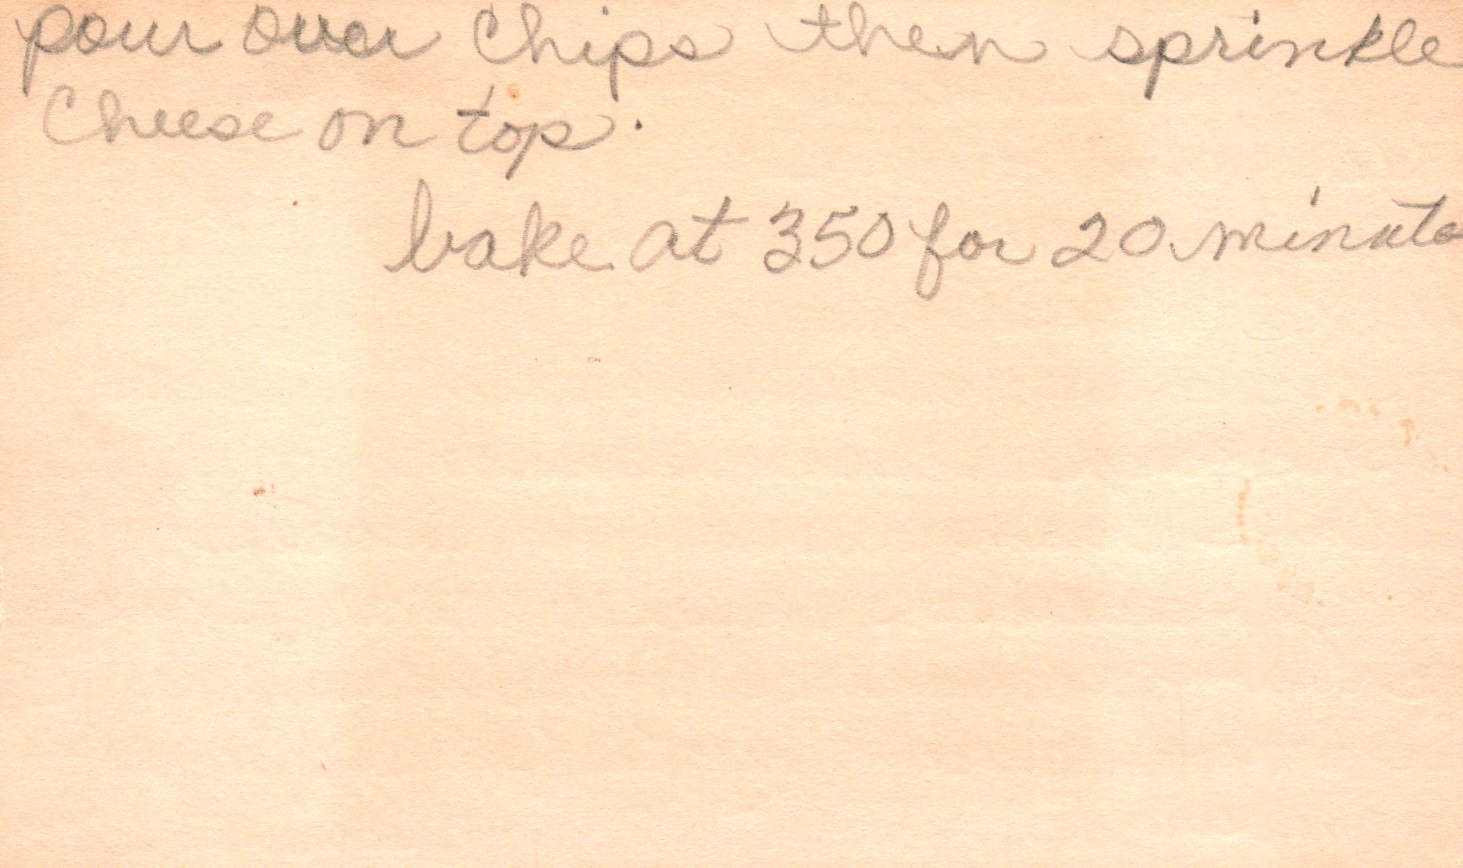 pour over chips then sprinkle
Cheese on top.
bake at 350 for 20 minute